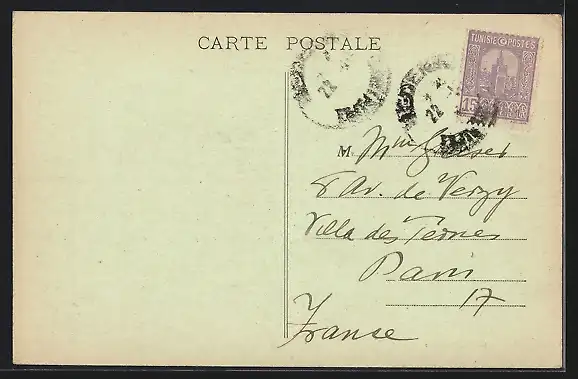 CARTE POSTALE
TUNISIE POSTES
15
M. Mme
8 Av. de Verzy
Villa des Ternes
Paris
17
France